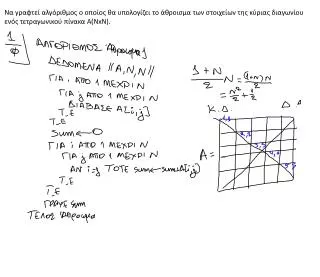 Να γραφτεί αλγόριθμος ο οποίος θα υπολογίζει το άθροισμα των στοιχείων της κύριας διαγωνίου
ενός τετραγωνικού πίνακα Α(ΝxΝ).
1
Φ
ΑΛΓΟΡΙΘΜΟΣ Άθροισμα1
ΔΕΔΟΜΕΝΑ // Α, Ν, Ν //
ΓΙΑ i ΑΠΟ 1 ΜΕΧΡΙ Ν
ΓΙΑ j ΑΠΟ 1 ΜΕΧΡΙ Ν
ΔΙΑΒΑΣΕ Α[i,j]
Τ_Ε
Τ_Ε
Sum ← 0
ΓΙΑ i ΑΠΟ 1 ΜΕΧΡΙ Ν
ΓΙΑ j ΑΠΟ 1 ΜΕΧΡΙ Ν
ΑΝ i=j ΤΟΤΕ sum ← sum+A[i,j]
Τ_Ε
Τ_Ε
ΓΡΑΨΕ sum
ΤΕΛΟΣ Άθροισμα
1+N
2
N = (1+N)N
2
= N²
2
+
2
Κ. Δ.
Δ
Α =
1,1
2,2
3,3
4,4
5,5